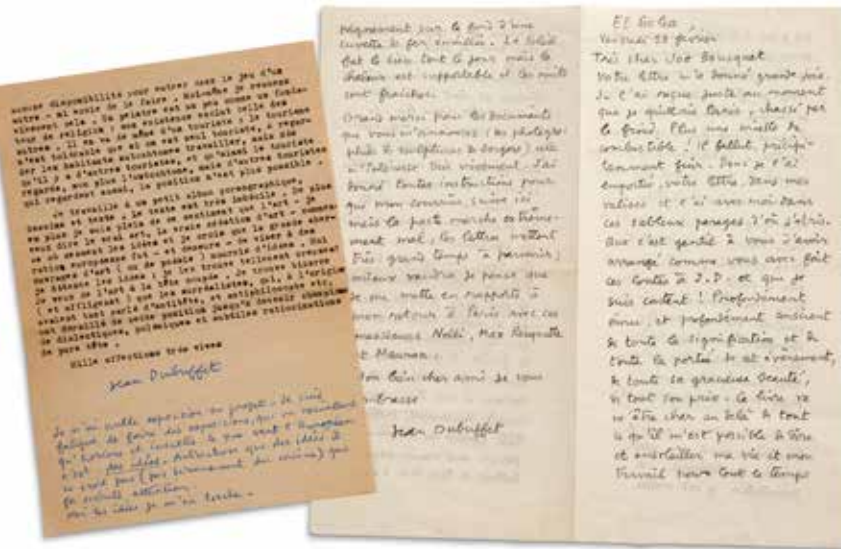 aucune disponibilité pour entrer dans le jeu d'un
autre - ni envie de le faire.
vivement cela. Un peintre est un peu comme un fonda-
teur de religion ; son existence exclut celle des
autres. Il en va de même d'un touriste ; le tourisme
n'est tolérable que si on est seul touriste, à regar-
der les habitants autochtones travailler, mais dès
qu'il y a d'autres touristes, et qu'aimait le touriste
regarde, non plus l'autochtone, mais d'autres touristes
qui regardent aussi, la position n'est plus possible.
Je travaille à un petit album pornographique,
dessins et texte. Le texte est très imbécile. De plus
en plus je suis plein de ce sentiment que l'art - je
veux dire le vrai art, la vraie opération d'art -
où cessent les idées et je crois que la grande aber-
ration européenne fut - et demeure - de viser à des
ouvrages d'art (ou de poésie) nourris d'idées. Moi
je déteste les idées ; je les trouve tellement
Je veux de l'art à la tête coupée. Je trouve
(et affligeant) que les surréalistes, qui, à l'origine
avaient tant parlé d'antitête, et antiphilosophe etc,
ont déraillé de cette position jusqu'à devenir champions
de dialectiques, polémiques et subtiles ratiocinations
de pure tête.
Mille affections très vives
Jean Dubuffet
Je n'ai nulle exposition en projet. Je suis
fatigué de faire des expositions, qui ne
qu'horions et insultes. Ce que veut l'Européen
c'est des idées.
ne croit pas
ça mérite attention.
Moi les idées je m'en torche.
sur le fond d'une
cuvette de fer émaillée. Le soleil
luit bien tout le jour mais la
chaleur est supportable et les nuits
sont fraîches.
Grand merci pour les documents
que vous m'annoncez (les photogra-
phies de sculptures de bergers) cela
m'intéresse très vivement. J'ai
donné toutes instructions pour
que mon courrier suive ici
mais la poste marche extrême-
ment mal, les lettres mettent
très grand temps à parvenir ;
mieux vaudra je pense que
je me mette en rapports à
mon retour à Paris avec ces
messieurs Nelli, Max Rouquette
et
Mon bien cher ami je vous
embrasse
Jean Dubuffet
El Goléa,
Vendredi février
Très cher Joe Bousquet
Votre lettre m'a donné grande joie.
Je l'ai reçue juste au moment
que je quittais Paris, chassé par
le froid. Plus une miette de
combustible ! Il fallut précipi-
tamment fuir. Donc je l'ai
emportée, votre lettre, dans mes
valises et l'ai avec moi dans
ces sableux parages d'où j'écris.
Que c'est gentil à vous d'avoir
arrangé comme vous avez fait
ces Contes à J.D. et que je
suis content ! Profondément
ému, et profondément conscient
de toute la signification et de
toute la portée de cet événement,
de toute sa grandeur beauté,
de tout son prix. Ce livre va
m'être cher au delà de tout
ce qu'il m'est possible de dire
et ensoleiller ma vie et mon
travail pour tout le temps